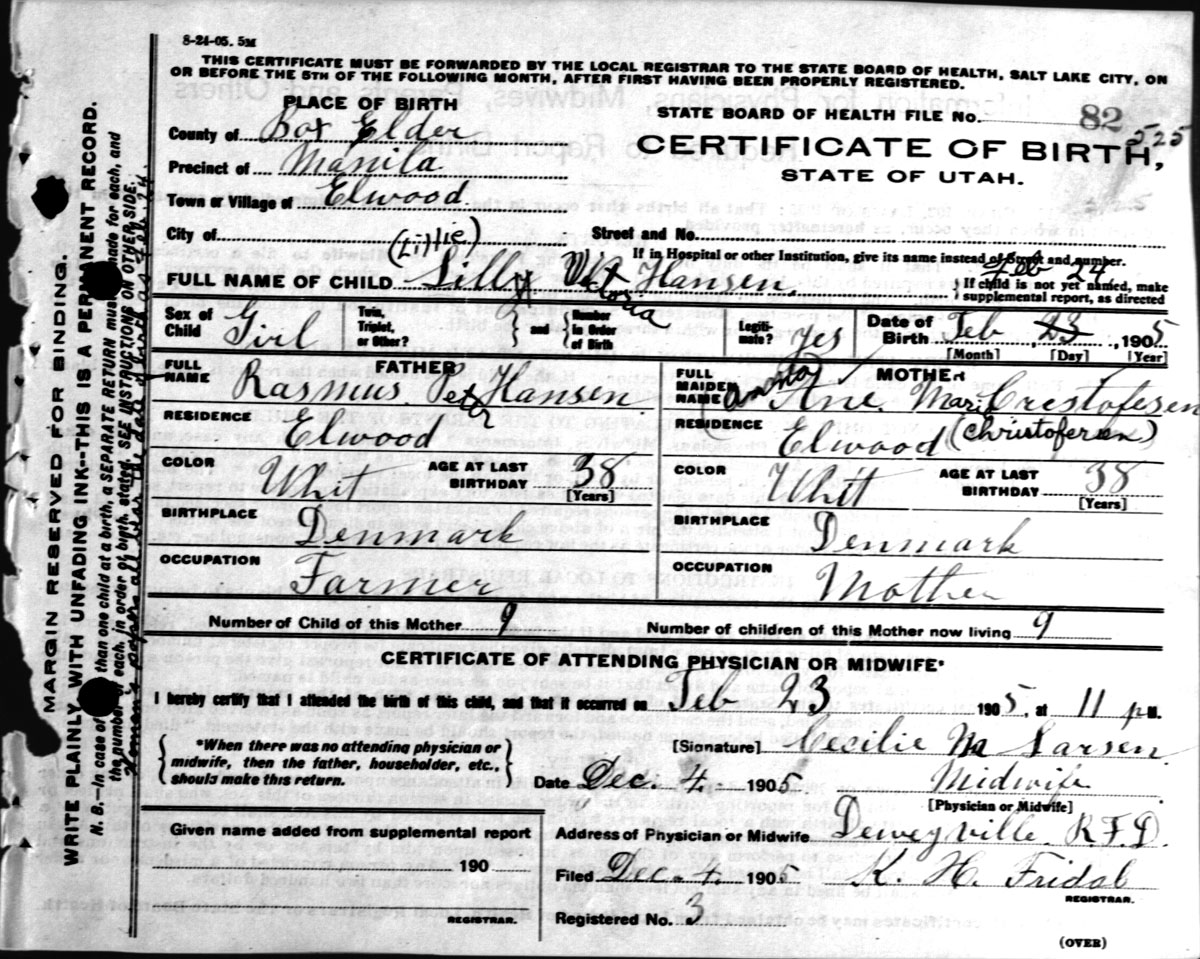 8-24-05. 5M
THIS CERTIFICATE MUST BE FORWARDED BY THE LOCAL REGISTRAR TO THE STATE BOARD OF HEALTH, SALT LAKE CITY, ON
OR BEFORE THE 5TH OF THE FOLLOWING MONTH, AFTER FIRST HAVING BEEN PROPERLY REGISTERED.
PLACE OF BIRTH
STATE BOARD OF HEALTH FILE No. 82 525
County of Box Elder
CERTIFICATE OF BIRTH,
Precinct of Manila
STATE OF UTAH.
Town or Village of Elwood
City of
Street and No.
(Lillie)
If in Hospital or other Institution, give its name instead of Street and number.
Feb 24
FULL NAME OF CHILD Lilly Vic Hansen.
toria
} If child is not yet named, make
supplemental report, as directed
Sex of Child Girl
Twin, Triplet, or Other?
} and { Number in Order of Birth
Legiti-mate? Yes
Date of Birth Feb 23, 1905
[Month] [Day] [Year]
FATHER
FULL NAME Rasmus Peter Hansen
RESIDENCE Elwood
COLOR Whit
AGE AT LAST BIRTHDAY 38
[Years]
BIRTHPLACE Denmark
OCCUPATION Farmer
MOTHER
FULL MAIDEN NAME Ane Marie Crestofesen
RESIDENCE Elwood (Christofersen)
COLOR Whit
AGE AT LAST BIRTHDAY 38
[Years]
BIRTHPLACE Denmark
OCCUPATION Mother
Number of Child of this Mother 9
Number of children of this Mother now living 9
CERTIFICATE OF ATTENDING PHYSICIAN OR MIDWIFE*
I hereby certify that I attended the birth of this child, and that it occurred on Feb 23 1905, at 11 p M.
{ *When there was no attending physician or
midwife, then the father, householder, etc.,
should make this return. }
[Signature] Cecilie M Larsen
Date Dec. 4 1905 Midwife
[Physician or Midwife]
Given name added from supplemental report
190
REGISTRAR.
Address of Physician or Midwife Deweyville R F D.
Filed Dec. 4. 1905 K H. Fridal
REGISTRAR.
Registered No. 3
(OVER)
MARGIN RESERVED FOR BINDING.
WRITE PLAINLY WITH UNFADING INK--THIS IS A PERMANENT RECORD.
N. B.--In case of than one child at a birth, a SEPARATE RETURN must be made for each, and
the number of each, in order of birth, stated. SEE INSTRUCTIONS ON OTHER SIDE.
papers all bear the date of birth as Feb. 24